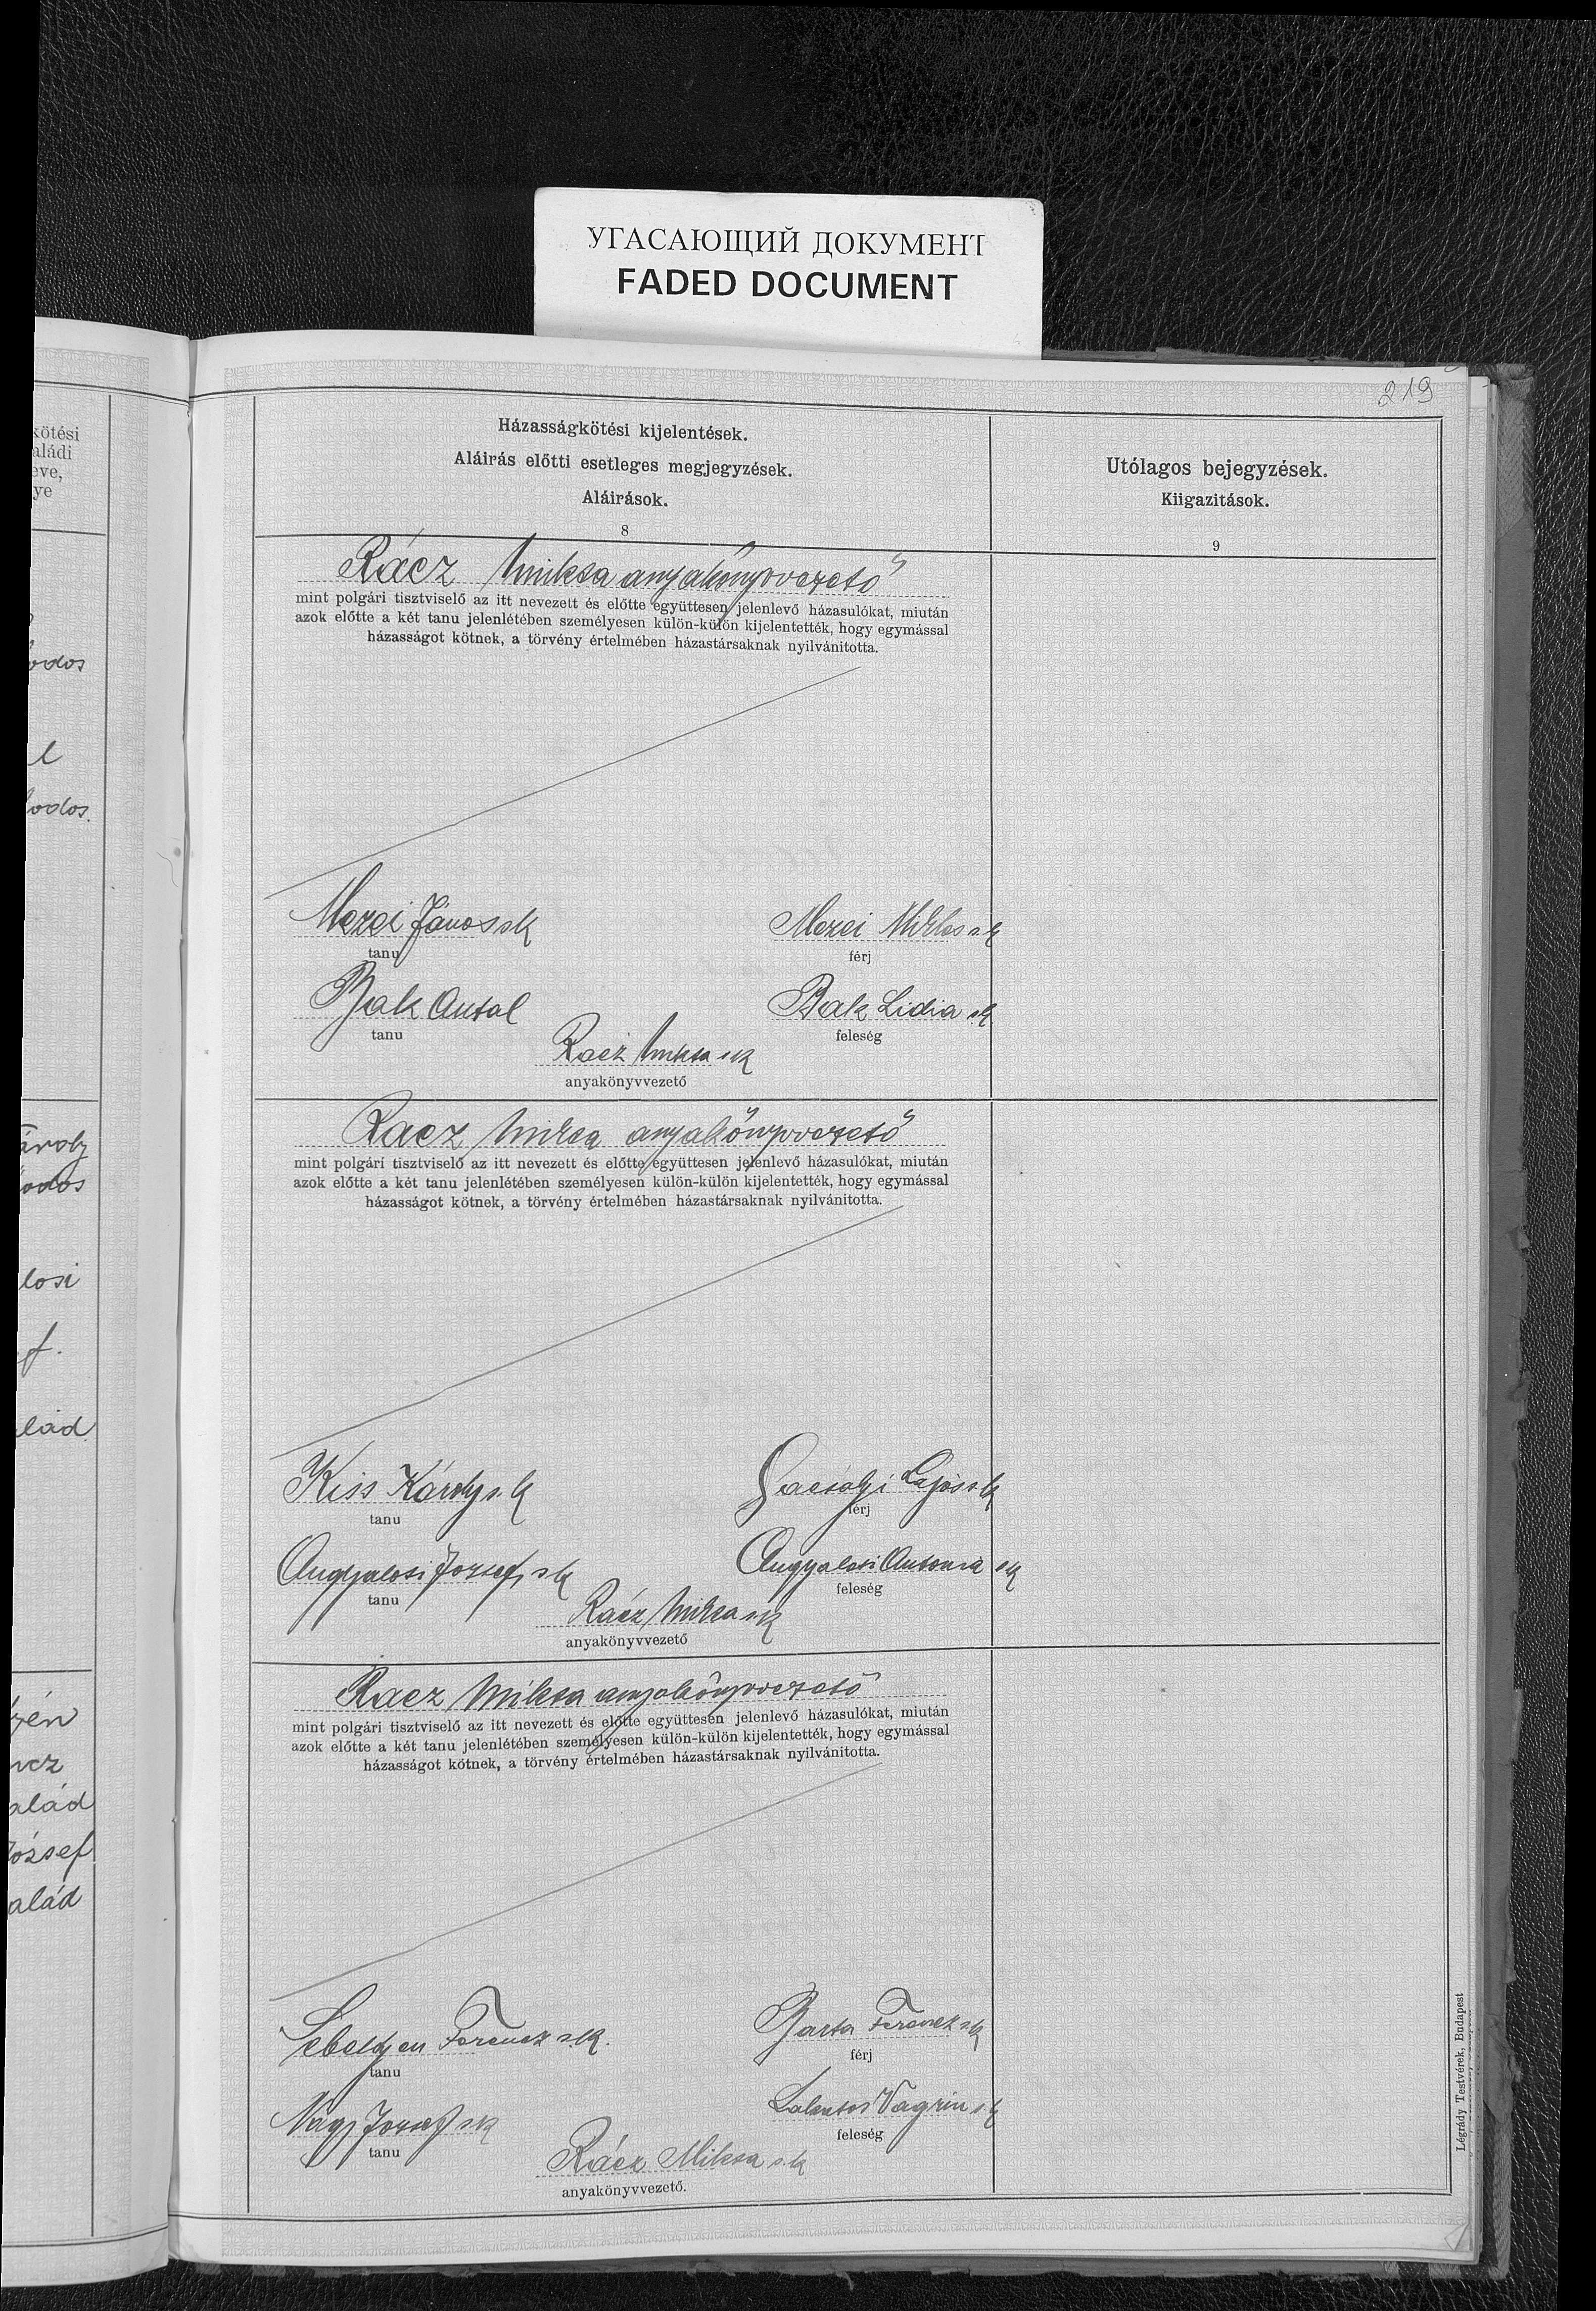 УГАСАЮЩИЙ ДОКУМЕНТ
FADED DOCUMENT
219
kötési
aládi
eve,
ye
odos
l
odos.
ároly
odos
losi
f.
lád.
zén
ncz
alád
ózsef
alád
Házasságkötési kijelentések.
Aláirás előtti esetleges megjegyzések.
Aláirások.
8
Utólagos bejegyzések.
Kiigazitások.
9
Rácz Miksa anyakönyvvezető
mint polgári tisztviselő az itt nevezett és előtte együttesen jelenlevő házasulókat, miután
azok előtte a két tanu jelenlétében személyesen külön-külön kijelentették, hogy egymással
házasságot kötnek, a törvény értelmében házastársaknak nyilvánitotta.
Mezei János sk
tanu
Mezei Miklos sk
férj
Bak Antal
tanu
Bak Lidia sk
feleség
Racz Miksa sk
anyakönyvvezető
Racz Miksa anyakönyvvezető
mint polgári tisztviselő az itt nevezett és előtte együttesen jelenlevő házasulókat, miután
azok előtte a két tanu jelenlétében személyesen külön-külön kijelentették, hogy egymással
házasságot kötnek, a törvény értelmében házastársaknak nyilvánitotta.
Kiss Károly s.k
tanu
Gacsályi Lajos sk
férj
Angyalosi Jozsef sk
tanu
Angyalosi Antonia sk
feleség
Rácz Miksa sk
anyakönyvvezető
Racz Miksa anyakönyvvezető
mint polgári tisztviselő az itt nevezett és előtte együttesen jelenlevő házasulókat, miután
azok előtte a két tanu jelenlétében személyesen külön-külön kijelentették, hogy egymással
házasságot kötnek, a törvény értelmében házastársaknak nyilvánitotta.
Ferencz s.k.
tanu
Barta Ferencz sk
férj
Nagy Jozsef sk
tanu
Lakatos sk
feleség
Rácz Miksa s.k
anyakönyvvezető.
Légrády Testvérek, Budapest